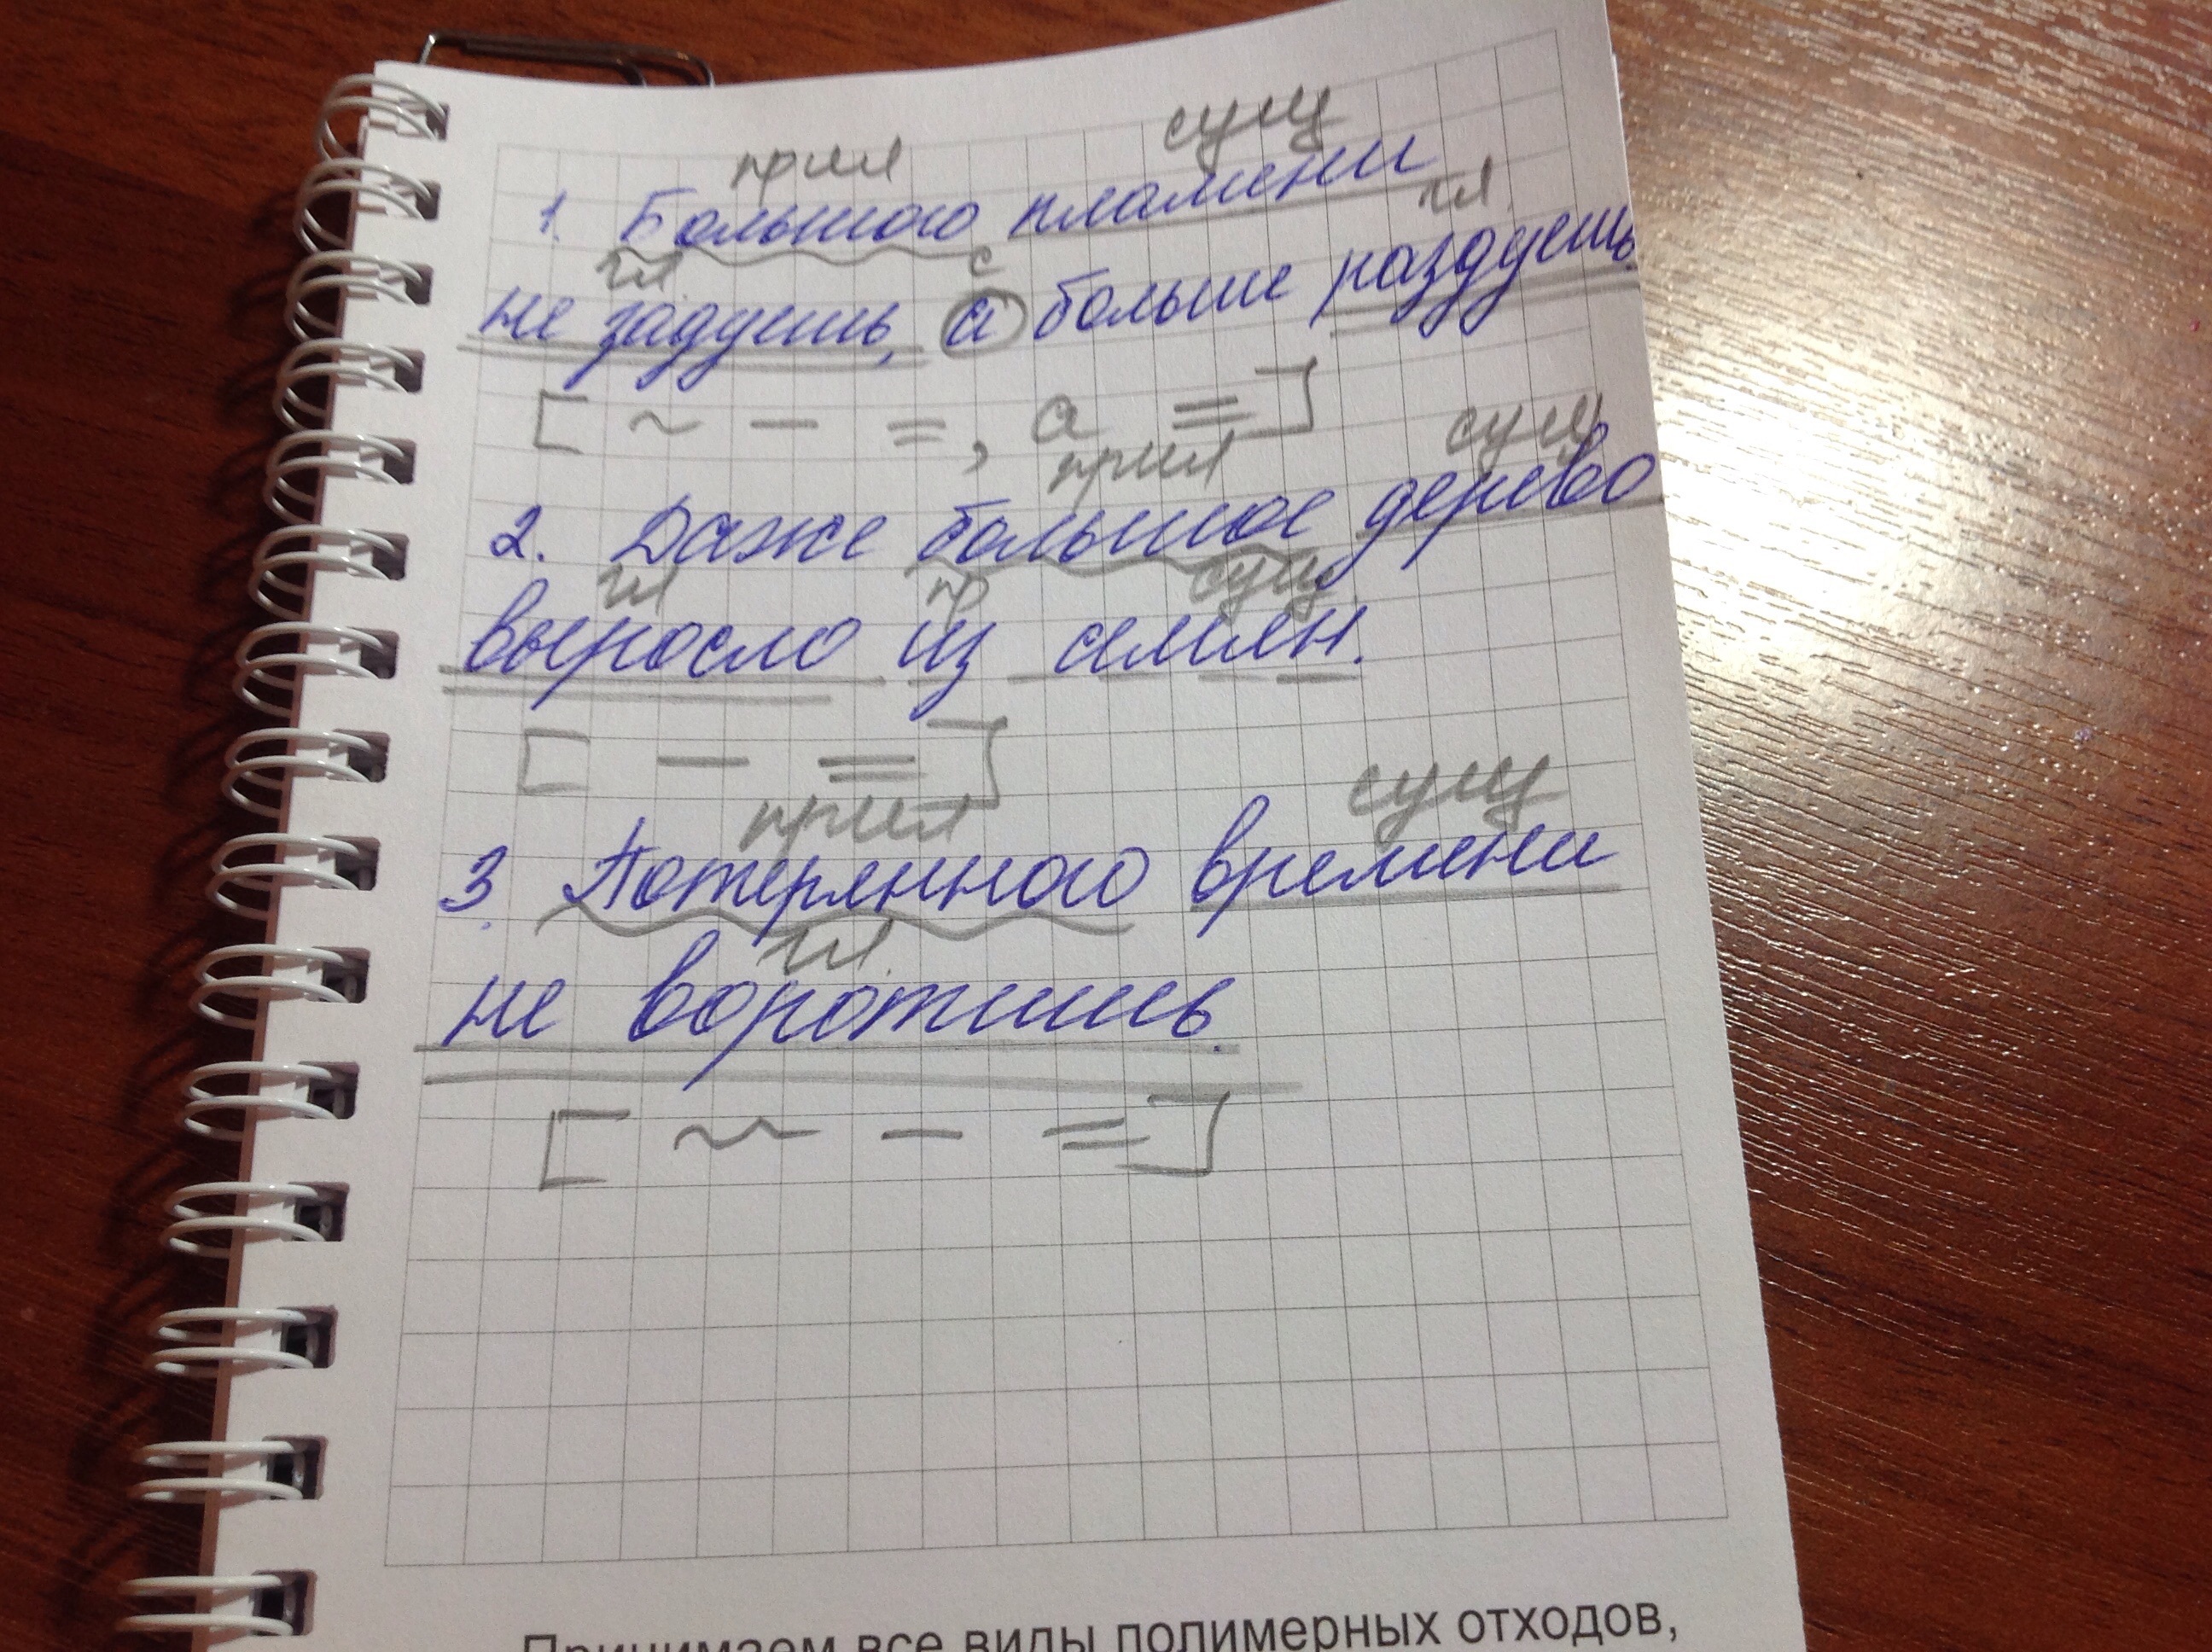 прил сущ
1. Большого пламени
гл с гл.
не задуешь, а больше раздуешь.
[ ~ — =, а = ]
прил сущ
2. Даже большое дерево
гл пр сущ
выросло из семян.
[ — = ]
прил сущ
3. Потерянного времени
гл.
не воротишь.
[ ~ — = ]
Принимаем все виды полимерных отходов,